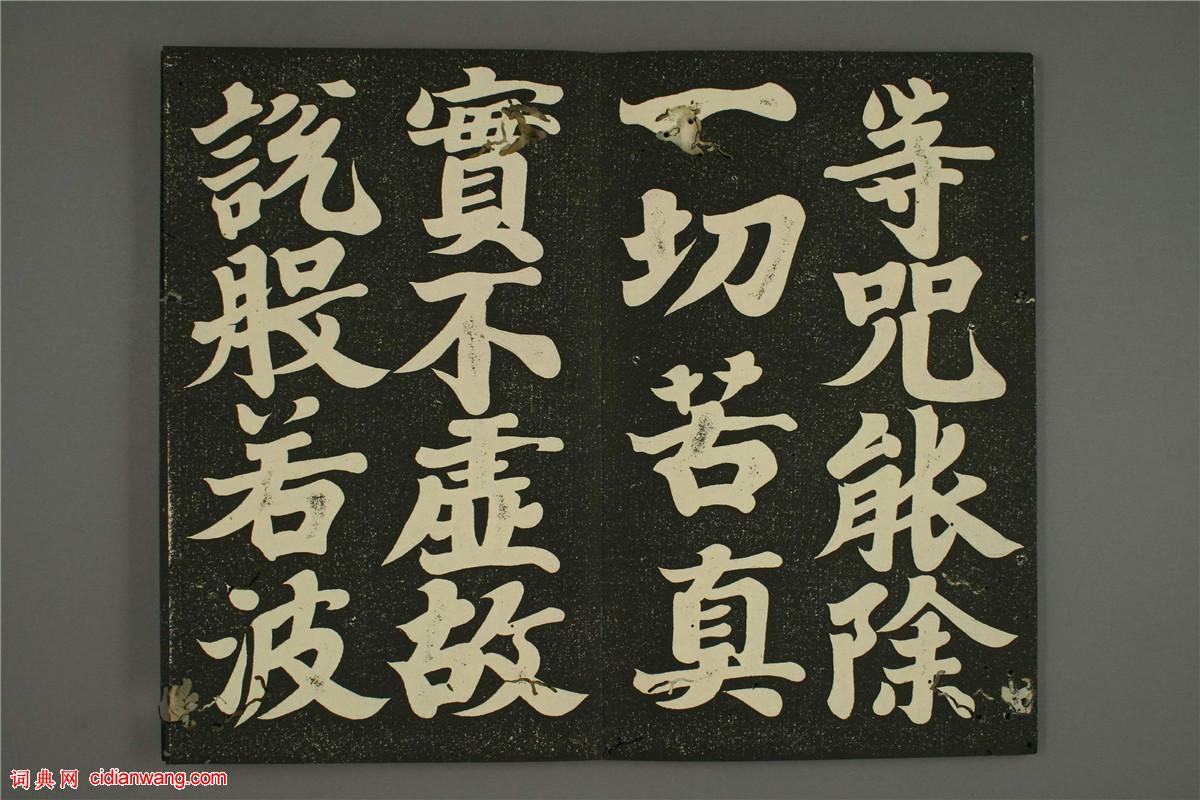 等咒能除
一切苦真
實不虛故
說般若波
词典网 cidianwang.com